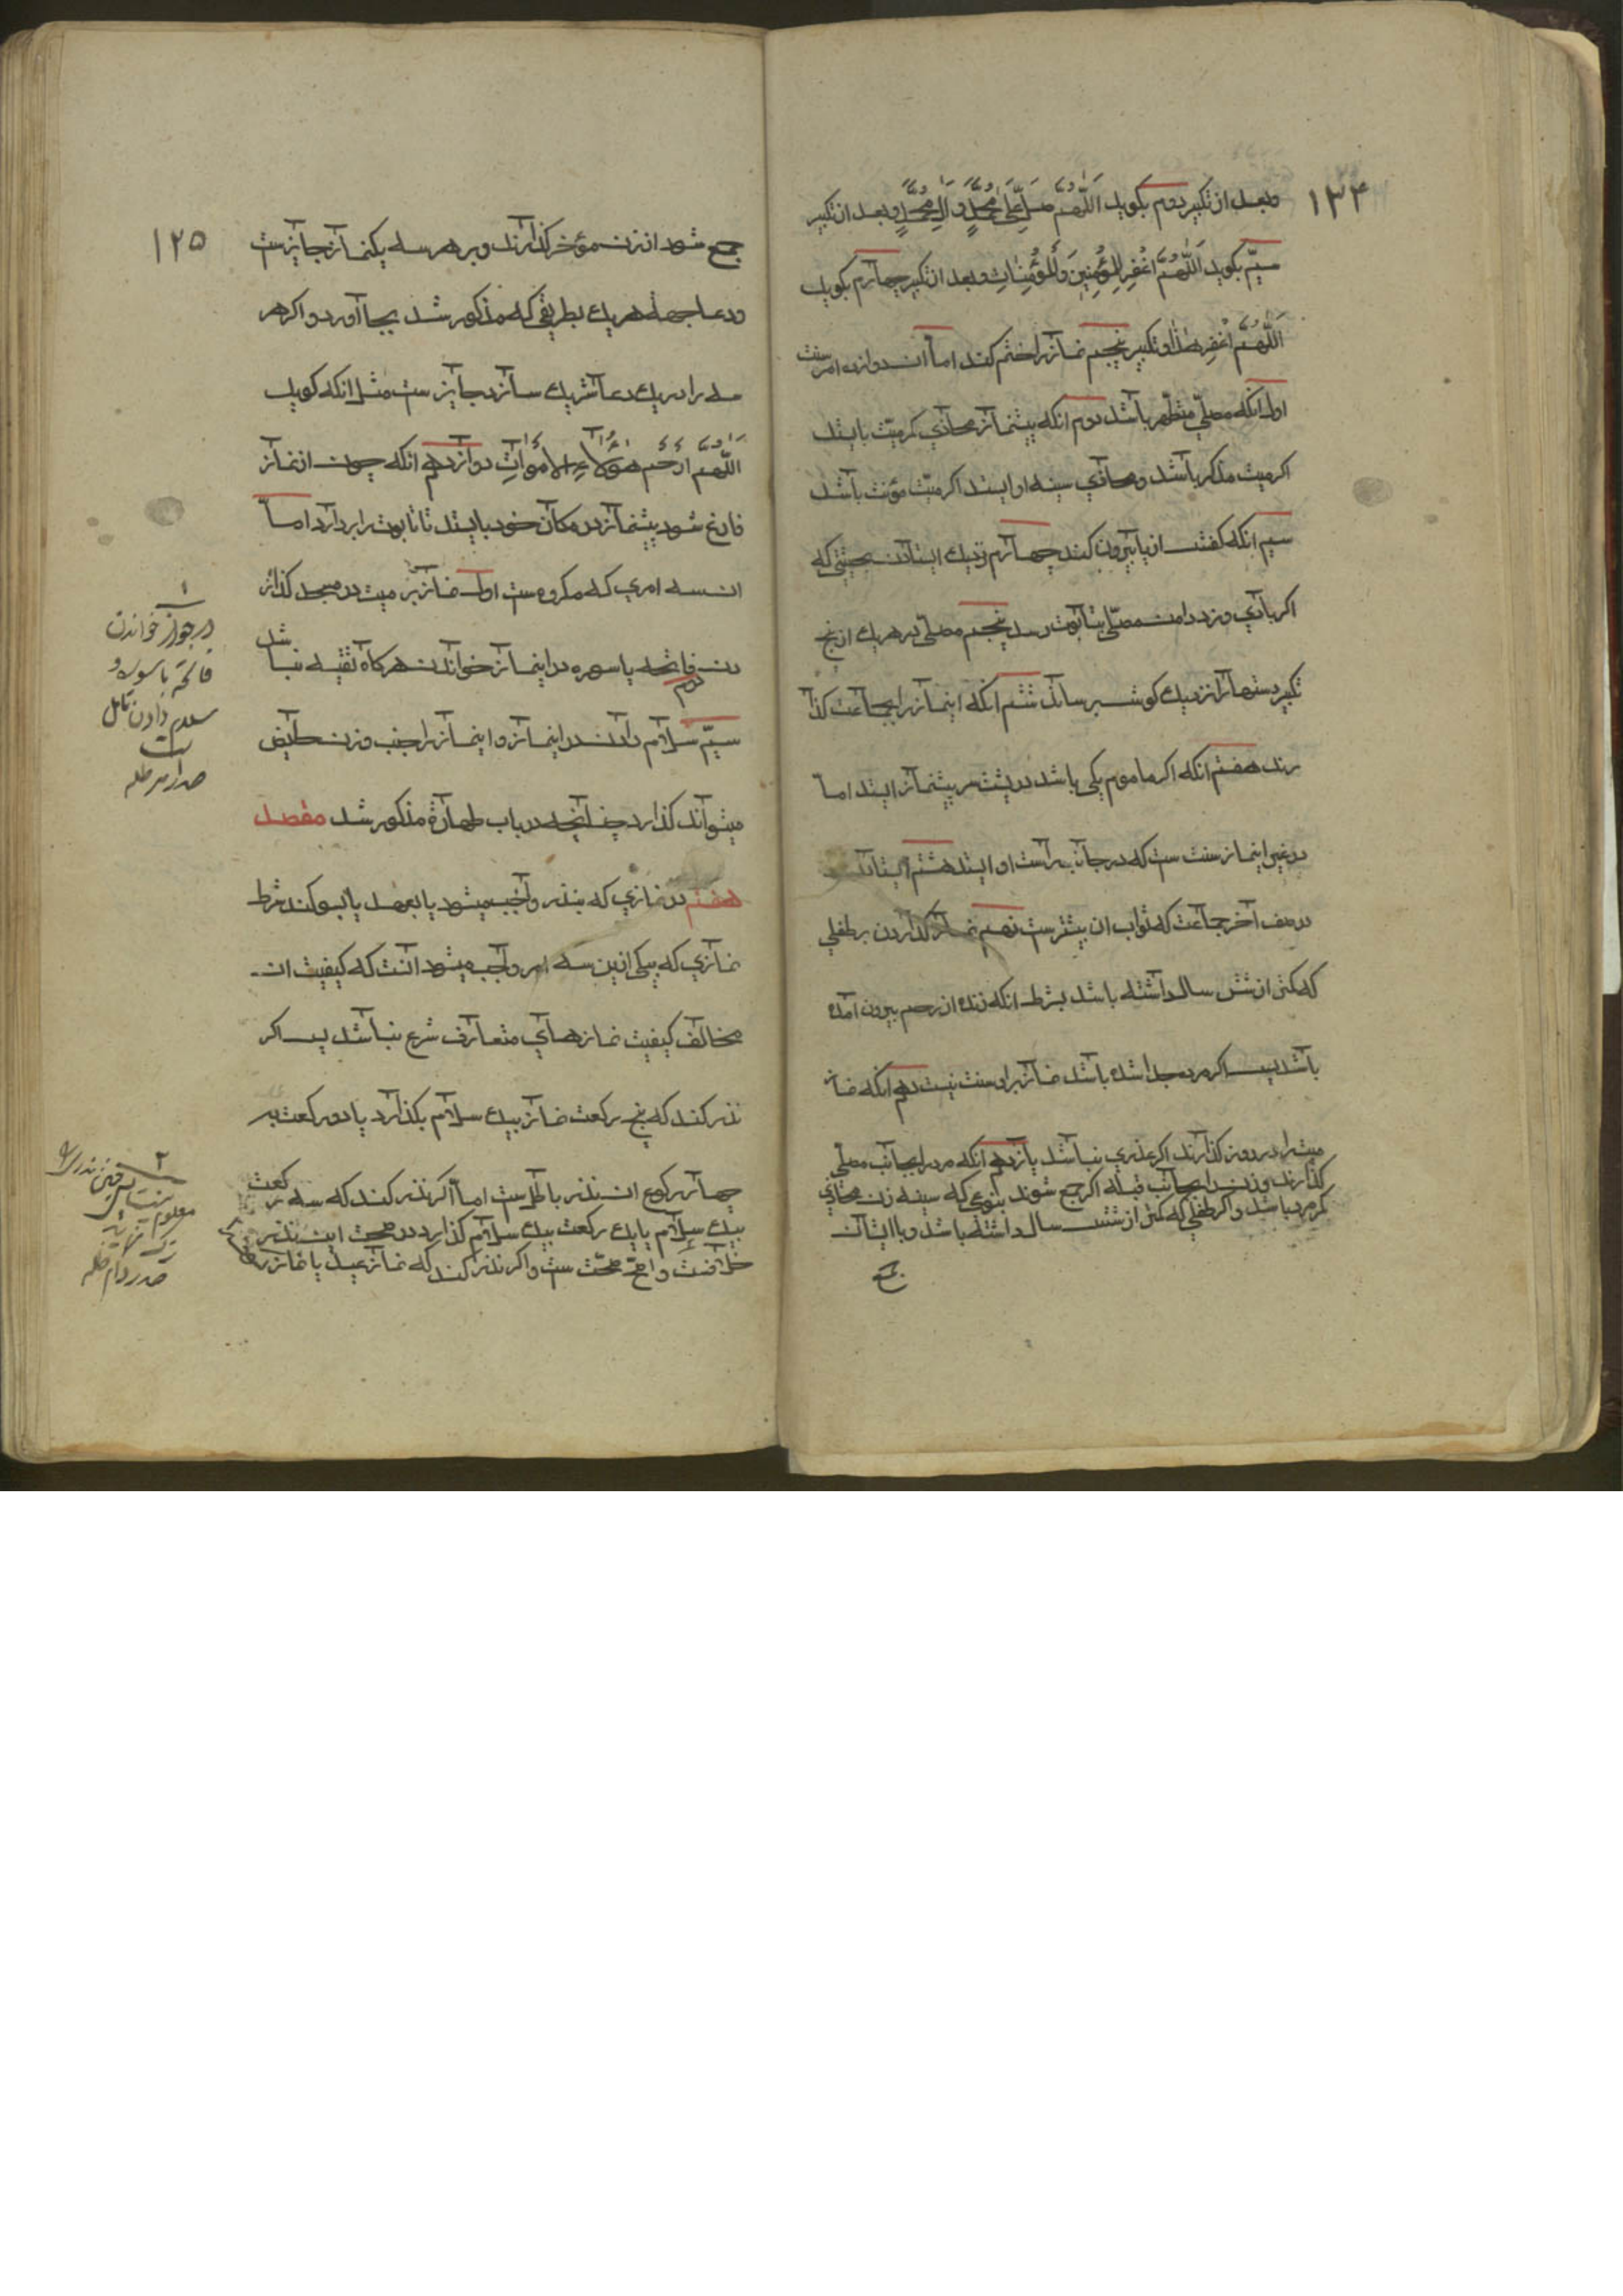 ۱۲۴
وبعد از تکبیر دوم بکوید اَللّٰهُمَّ صَلِّ عَلٰی مُحَمَّدٍ وَ اٰلِ مُحَمَّدٍ وبعد ان تکبیر
سیّم بکوید اَللّٰهُمَّ اغْفِرْ لِلْمُؤْمِنِینَ وَالْمُؤْمِنٰاتِ وبعد ان تکبیر چهارم بکوید
اَللّٰهُمَّ اغْفِرْ لِهٰذا وتکبیر پنجم نماز را ختم کند اما ان دوازده امر سنت
اول انکه مصلّی متطهر باشد دوم انکه پیشنماز محاذی کمر میّت بایستد
اکر میت مذکر باشد ومحاذی سینه او ایستد اکر میّت مؤنث باشد
سیم انکه کفش از پا بیرون کند چهارم نزدیك ایستادن بحیثیتی که
اکر بادی وزد دامن مصلّی بتابوت رسد پنجم مصلّی در هریك از پنج
تکبیر دستها را نزدیك کوش رساند ششم انکه اینماز را بجماعت کذا
رند هفتم انکه اکر ماموم یکی باشد در پشت سر پیشنماز ایستد اما
در غیر اینماز سنت ست که در جانب راست او ایستد هشتم ایستادن
در صف آخر جماعت که ثواب ان بیشتر ست نهم نماز کذاردن بر طفلی
که کمتر از شش سال داشته باشد بشرط انکه زنده از رحم بیرون آمده
باشد پس اکر مرده جدا شده باشد نماز بر او سنت نیست دهم انکه نماز
میت را در روز کذارند اکر عذری نباشد یازدهم انکه مرد را بجانب مصلّی
کذارند وزن را بجانب قبله اکر جمع شوند بنوعی که سینه زن محاذی
کمر مرد باشد واکر طفلی که کمتر از شش سال داشته باشد وبا ایشان
جمع
۱۲۵
جمع شود از زن مؤخر کذارند وبر هر سه یکنماز جایزست
ودعا جهة هریك بطریقی که مذکور شد بجا آورد واکر هر
سه را در یك دعا شریك سازد جایز ست مثل انکه کوید
اَللّٰهُمَّ ارْحَمْ هٰؤُلاٰءِ الاَمْوٰاتِ دوازدهم انکه چون از نماز
فارغ شود پیشنماز در مکان خود بایستد تا تابوت را بردارد اما
ان سه امری که مکروه ست اول نماز بر میت در مسجد کذار
دن دوم فاتحه یا سوره در اینماز خواندن هرکاه تقیه نباشد
سیّم سلام دادن در اینماز واینماز را جنب وزن حایض
میتواند کذارد چنانچه در باب طهارة مذکور شد مقصد
هفتم در نمازی که بنذر واجب میشود یا بعهد یا بسوکند شرط
نمازی که بیکی ازین سه امر واجب میشود آنست که کیفیت ان
مخالف کیفیت نمازهای متعارف شرع نباشد پس اکر
نذر کند که پنج رکعت نماز بیك سلام بکذارد یا دو رکعت به
چهار رکوع ان نذر باطل ست اما اکر نذر کند که سه رکعت
بیك سلام یا یك رکعت بیك سلام کذارد در صحت این نذر
خلافست واصحّ صحّت ست واکر نذر کند که نماز عید یا نماز
۱
در جواز خواندن
فاتحه یا سوره و
سلام دادن تامل
ست
صدر مد ظله
۲
معلوم نیست
صدر دام ظله